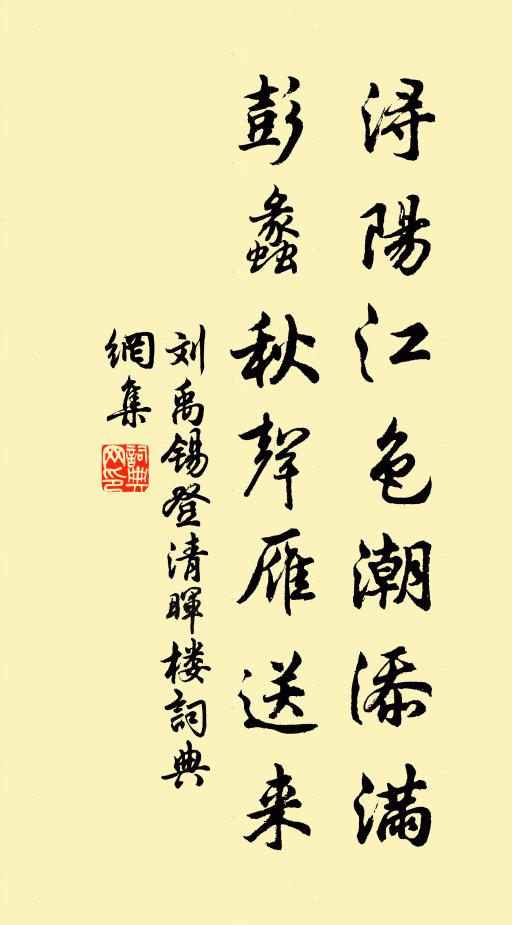 浔陽江色潮添滿
彭蠡秋聲雁送来
刘禹锡登清暉楼詞典
網集
詞典
网印